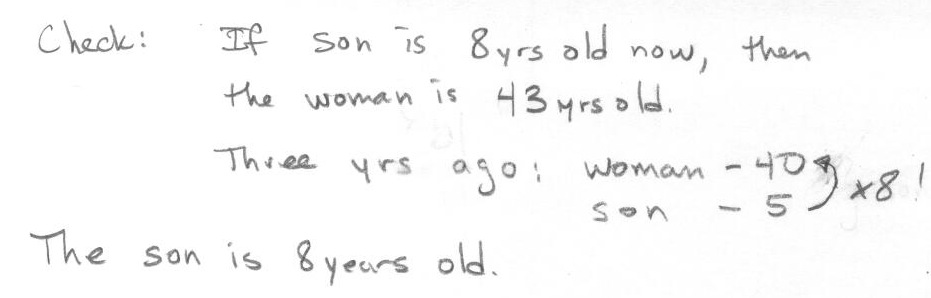 Check: If son is 8 yrs old now, then
the woman is 43 yrs old.
Three yrs ago: woman - 40
son - 5 x8!
The son is 8 years old.